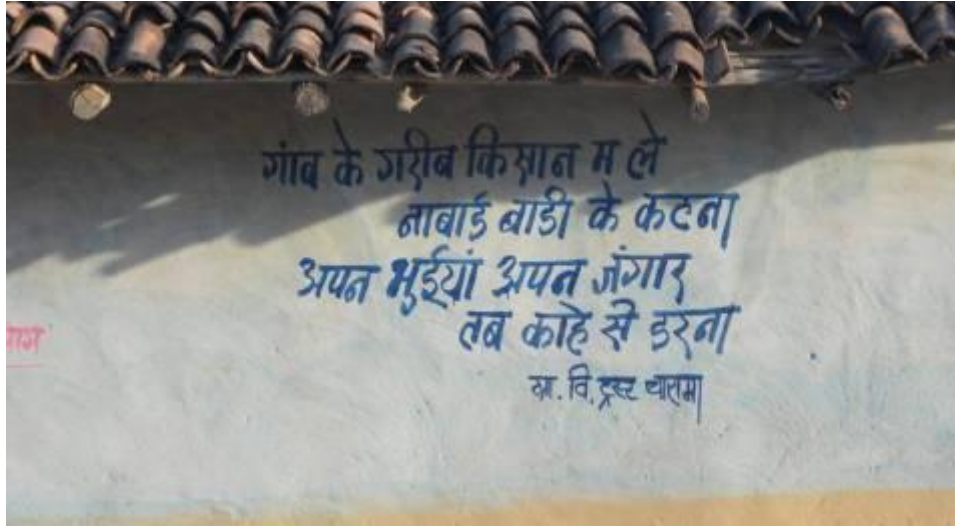 गांव के गरीब किसान म ले
नाबार्ड बाडी के कटना
अपन भुईयां अपन जंगार
तब काहे से डरना
ग्रा. वि. ट्रस्ट